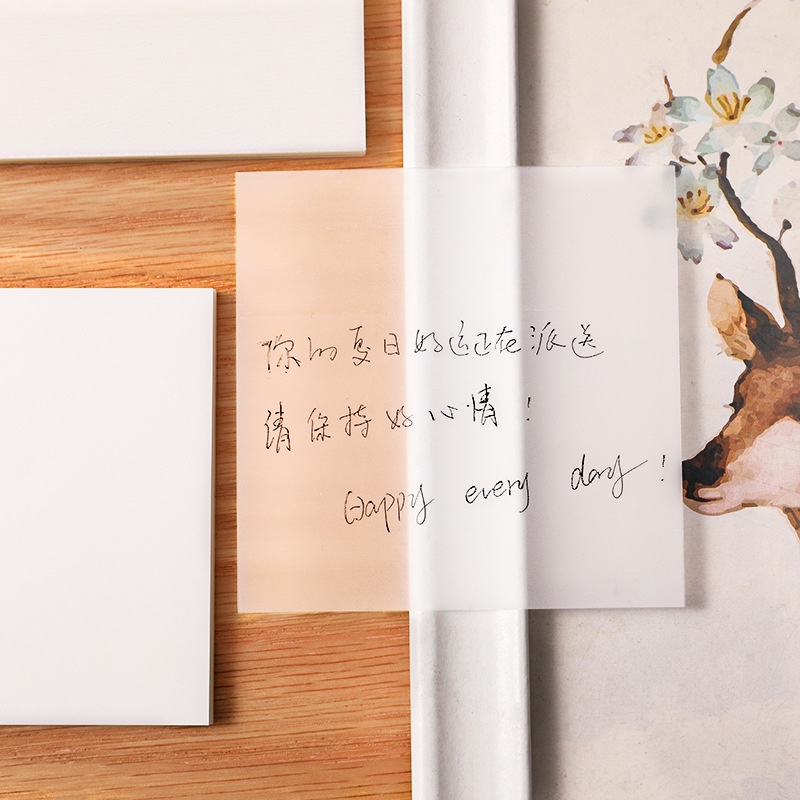 你的夏日好运正在派送
请保持好心情！
Happy every day！